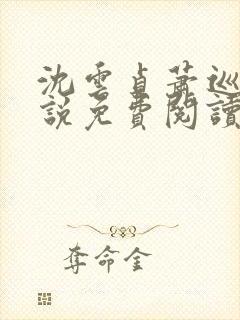 沈雲貞蕭巡
說免費閱讀
奪命金